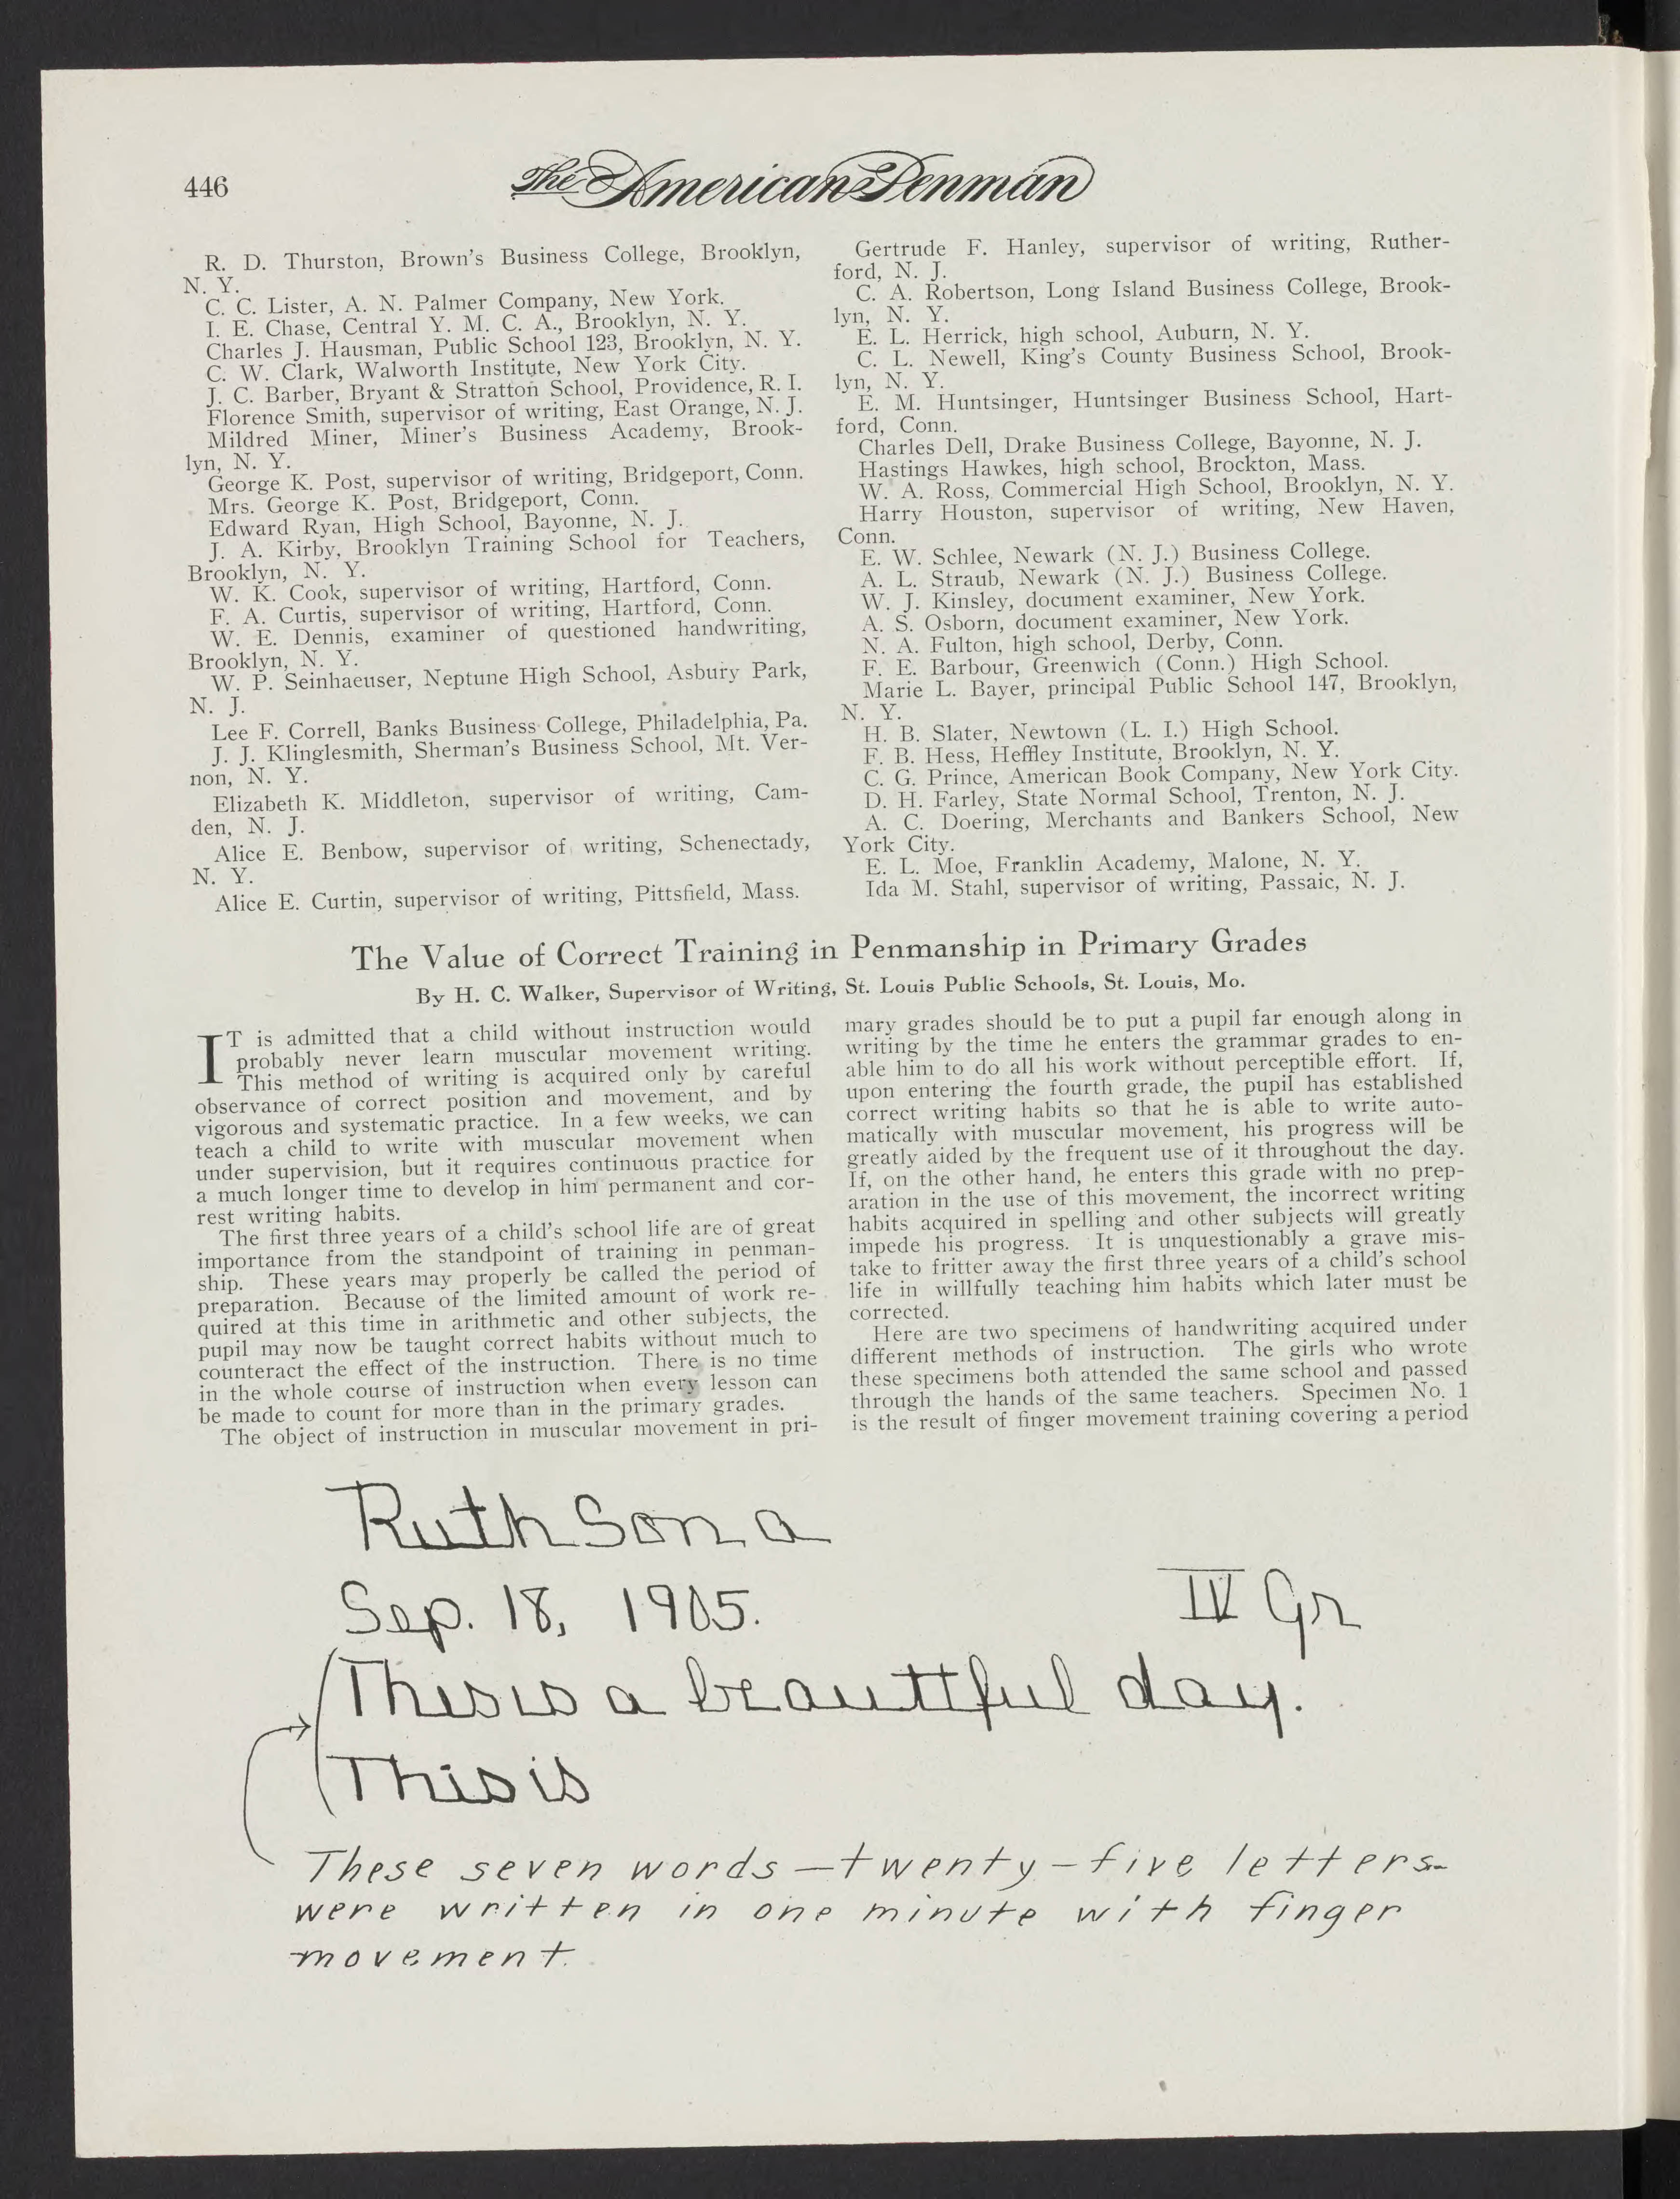 446
The American Penman
R. D. Thurston, Brown's Business College, Brooklyn,
N. Y.
C. C. Lister, A. N. Palmer Company, New York.
I. E. Chase, Central Y. M. C. A., Brooklyn, N. Y.
Charles J. Hausman, Public School 123, Brooklyn, N. Y.
C. W. Clark, Walworth Institute, New York City.
J. C. Barber, Bryant & Stratton School, Providence, R. I.
Florence Smith, supervisor of writing, East Orange, N. J.
Mildred Miner, Miner's Business Academy, Brook-
lyn, N. Y.
George K. Post, supervisor of writing, Bridgeport, Conn.
Mrs. George K. Post, Bridgeport, Conn.
Edward Ryan, High School, Bayonne, N. J.
J. A. Kirby, Brooklyn Training School for Teachers,
Brooklyn, N. Y.
W. K. Cook, supervisor of writing, Hartford, Conn.
F. A. Curtis, supervisor of writing, Hartford, Conn.
W. E. Dennis, examiner of questioned handwriting,
Brooklyn, N. Y.
W. P. Seinhaeuser, Neptune High School, Asbury Park,
N. J.
Lee F. Correll, Banks Business College, Philadelphia, Pa.
J. J. Klinglesmith, Sherman's Business School, Mt. Ver-
non, N. Y.
Elizabeth K. Middleton, supervisor of writing, Cam-
den, N. J.
Alice E. Benbow, supervisor of writing, Schenectady,
N. Y.
Alice E. Curtin, supervisor of writing, Pittsfield, Mass.
Gertrude F. Hanley, supervisor of writing, Ruther-
ford, N. J.
C. A. Robertson, Long Island Business College, Brook-
lyn, N. Y.
E. L. Herrick, high school, Auburn, N. Y.
C. L. Newell, King's County Business School, Brook-
lyn, N. Y.
E. M. Huntsinger, Huntsinger Business School, Hart-
ford, Conn.
Charles Dell, Drake Business College, Bayonne, N. J.
Hastings Hawkes, high school, Brockton, Mass.
W. A. Ross, Commercial High School, Brooklyn, N. Y.
Harry Houston, supervisor of writing, New Haven,
Conn.
E. W. Schlee, Newark (N. J.) Business College.
A. L. Straub, Newark (N. J.) Business College.
W. J. Kinsley, document examiner, New York.
A. S. Osborn, document examiner, New York.
N. A. Fulton, high school, Derby, Conn.
F. E. Barbour, Greenwich (Conn.) High School.
Marie L. Bayer, principal Public School 147, Brooklyn,
N. Y.
H. B. Slater, Newtown (L. I.) High School.
F. B. Hess, Heffley Institute, Brooklyn, N. Y.
C. G. Prince, American Book Company, New York City.
D. H. Farley, State Normal School, Trenton, N. J.
A. C. Doering, Merchants and Bankers School, New
York City.
E. L. Moe, Franklin Academy, Malone, N. Y.
Ida M. Stahl, supervisor of writing, Passaic, N. J.
The Value of Correct Training in Penmanship in Primary Grades
By H. C. Walker, Supervisor of Writing, St. Louis Public Schools, St. Louis, Mo.
IT is admitted that a child without instruction would
probably never learn muscular movement writing.
This method of writing is acquired only by careful
observance of correct position and movement, and by
vigorous and systematic practice. In a few weeks, we can
teach a child to write with muscular movement when
under supervision, but it requires continuous practice for
a much longer time to develop in him permanent and cor-
rest writing habits.
The first three years of a child's school life are of great
importance from the standpoint of training in penman-
ship. These years may properly be called the period of
preparation. Because of the limited amount of work re-
quired at this time in arithmetic and other subjects, the
pupil may now be taught correct habits without much to
counteract the effect of the instruction. There is no time
in the whole course of instruction when every lesson can
be made to count for more than in the primary grades.
The object of instruction in muscular movement in pri-
mary grades should be to put a pupil far enough along in
writing by the time he enters the grammar grades to en-
able him to do all his work without perceptible effort. If,
upon entering the fourth grade, the pupil has established
correct writing habits so that he is able to write auto-
matically with muscular movement, his progress will be
greatly aided by the frequent use of it throughout the day.
If, on the other hand, he enters this grade with no prep-
aration in the use of this movement, the incorrect writing
habits acquired in spelling and other subjects will greatly
impede his progress. It is unquestionably a grave mis-
take to fritter away the first three years of a child's school
life in willfully teaching him habits which later must be
corrected.
Here are two specimens of handwriting acquired under
different methods of instruction. The girls who wrote
these specimens both attended the same school and passed
through the hands of the same teachers. Specimen No. 1
is the result of finger movement training covering a period
Ruth Sona
Sep. 18, 1905.
IV Gr
This is a beauttful day.
This is
These seven words—twenty-five letters—
were written in one minute with finger
movement.